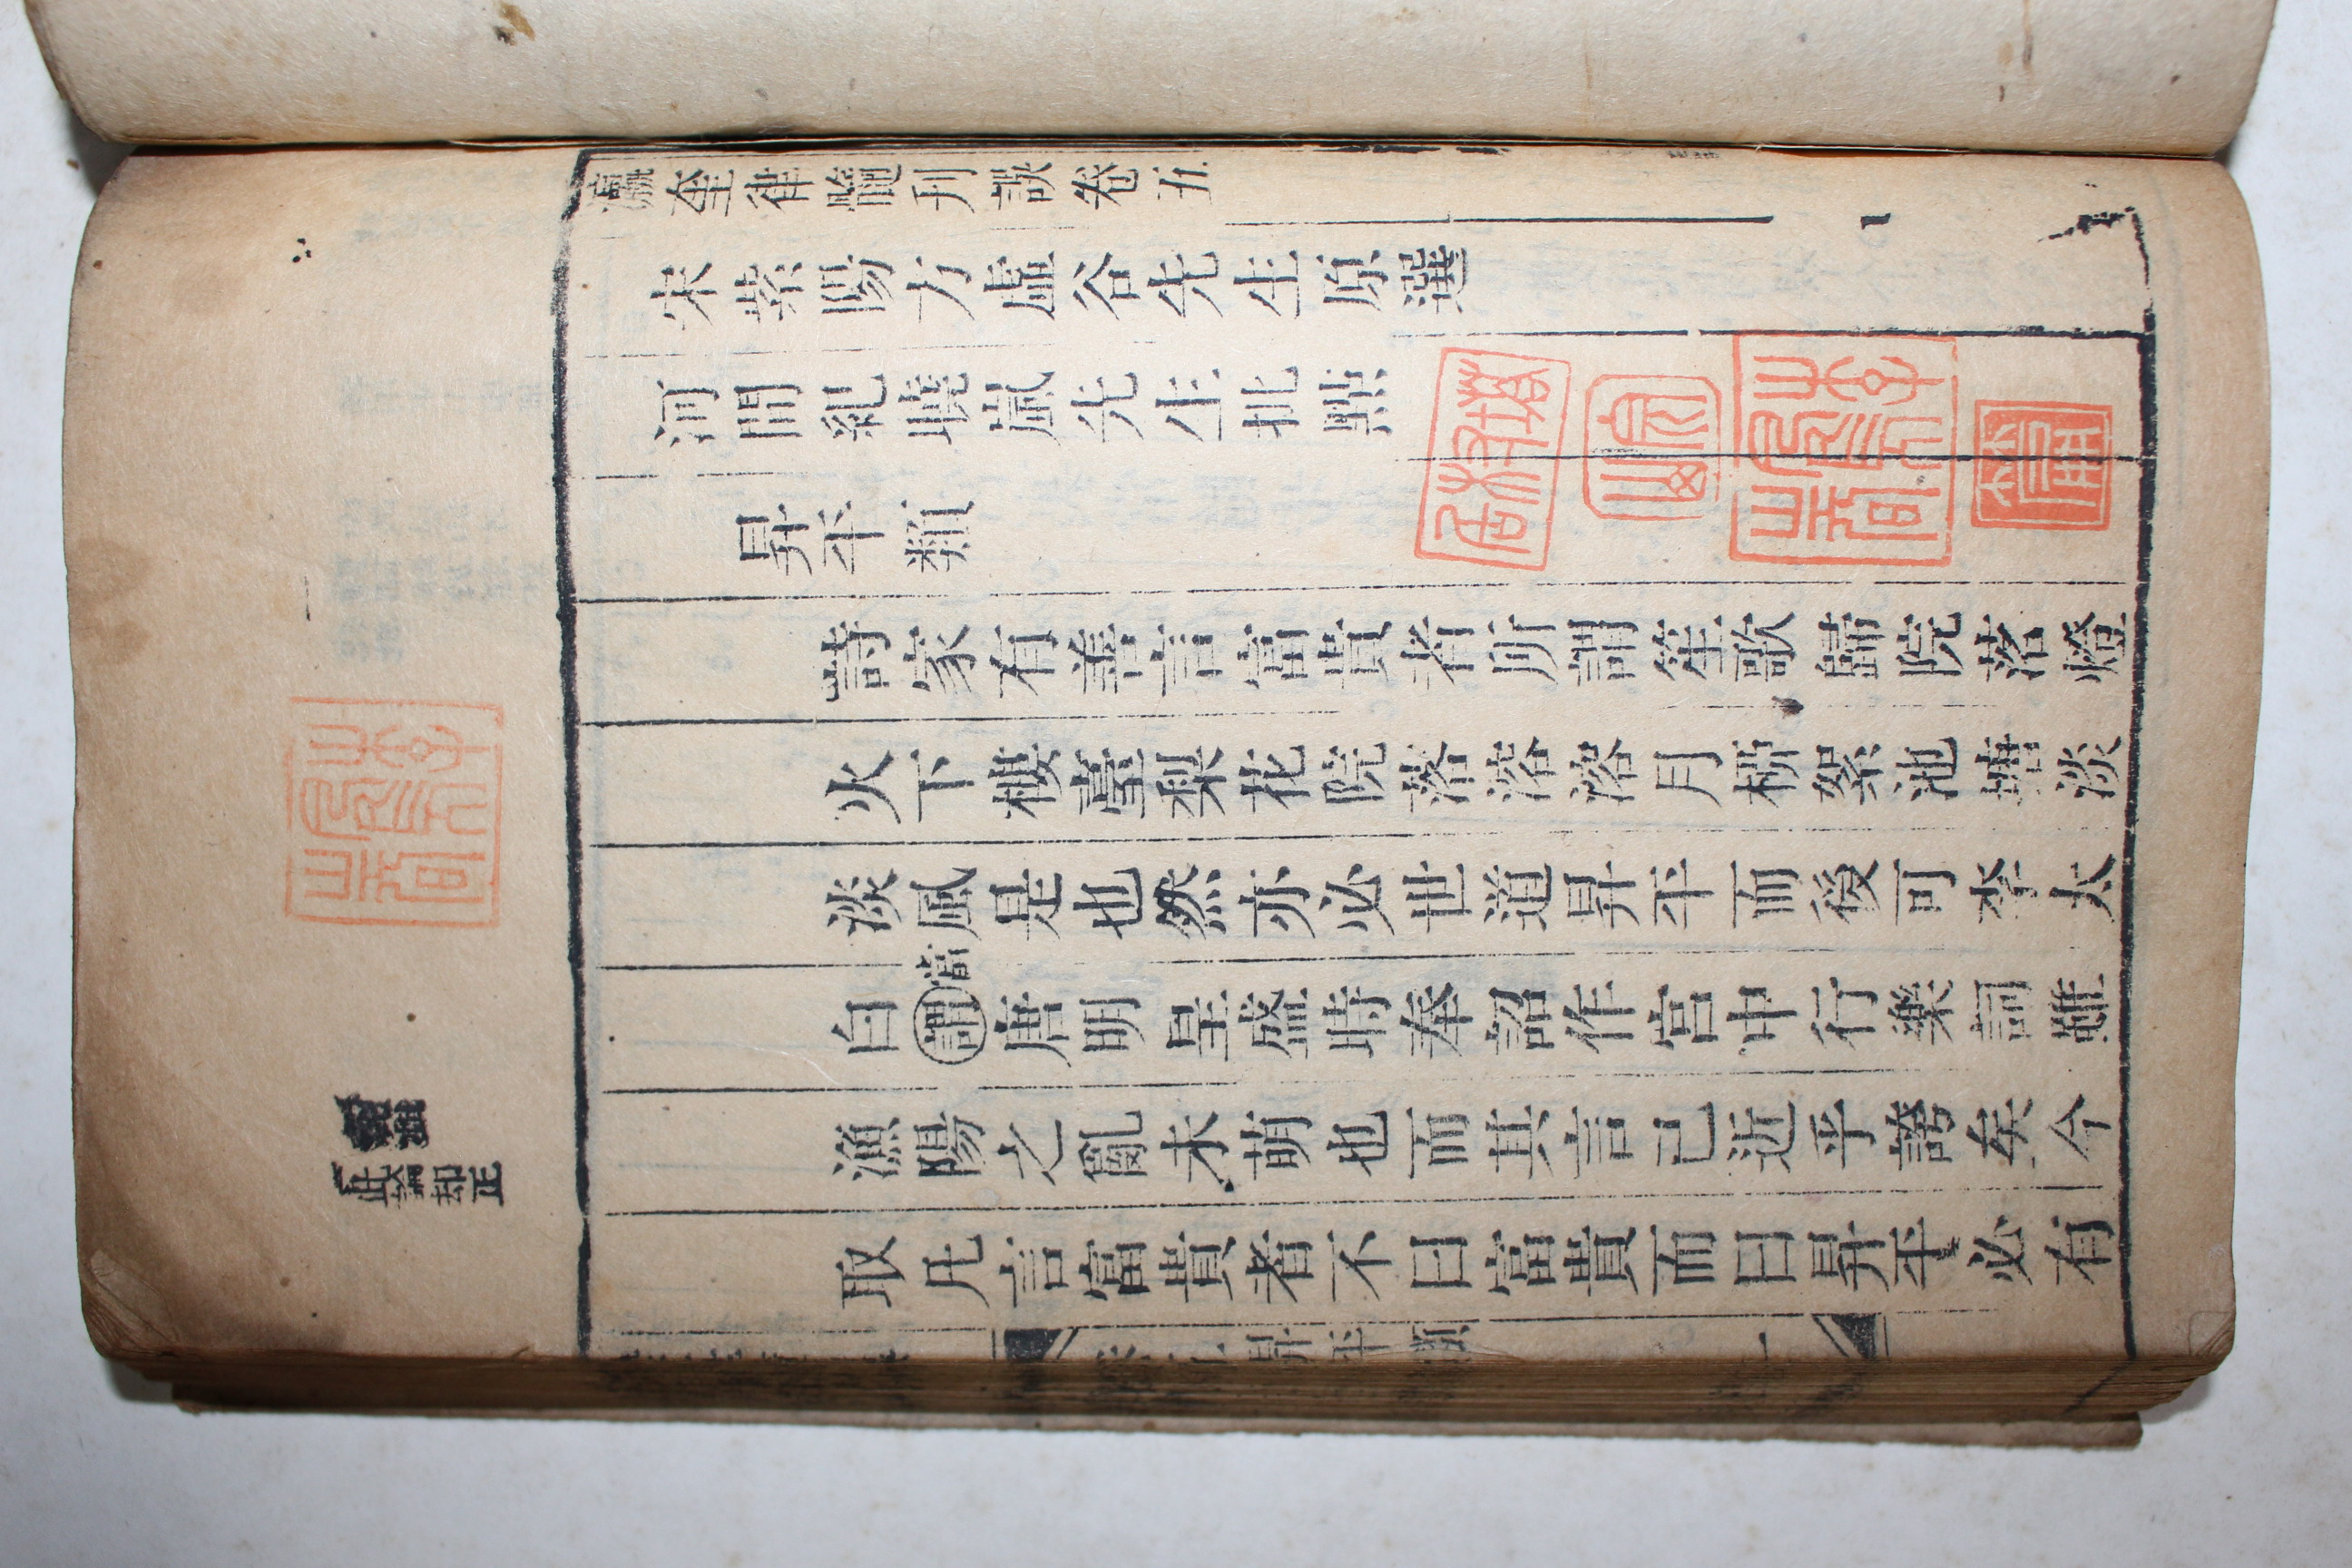 瀛奎律髓刊誤卷五
宋紫陽方虛谷先生原選
河間紀曉嵐先生批點
昇平類
詩家有善言富貴者所謂笙歌歸院落燈
火下樓臺梨花院落溶溶月柳絮池塘淡
淡風是也然亦必世道昇平而後可李太
白謂唐明皇盛時奉詔作宮中行樂詞雖
當
漁陽之亂未萌也而其言已近乎誇矣今
取凡言富貴者不曰富貴而曰昇平必有
昇平類
此論却正